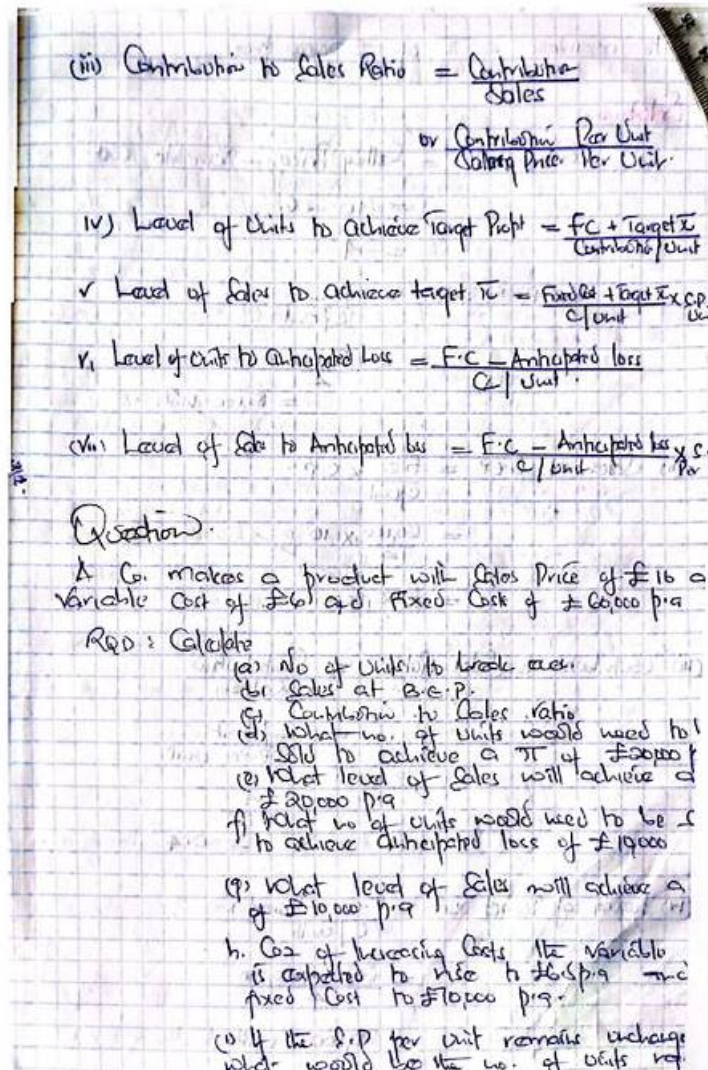 (iii) Contribution to Sales Ratio = Contribution
Sales
or Contribution Per Unit
Selling Price Per Unit.
iv) Level of Units to achieve Target Profit = FC + Target π
Contribution/unit
v Level of Sales to achieve target π = Fixed Cost + Target π x S.P
C/unit Unit
vi Level of units to anticipated Loss = F.C - Anticipated loss
C/unit.
(vii) Level of Sales to Anticipated loss = F.C - Anticipated loss x S.
C/unit Per
Question.
A Co. makes a product with Sales Price of £16 a
Variable Cost of £6 and Fixed Cost of £60,000 p.a
RQD: Calculate
(a) No of units to break even.
(b) Sales at B.E.P.
(c) Contribution to Sales ratio
(d) What no. of units would need to
sold to achieve a π of £20000
(e) What level of Sales will achieve a
£20000 p.a
f) What no of units would need to be s
to achieve anticipated loss of £10000
(g) What level of Sales will achieve a
of £10,000 p.a
h. Coz of Increasing Costs the Variable
is expected to rise to £6.5 p.a
fixed Cost to £70,000 p.a.
(i) If the S.P per unit remains unchange
what would be the no. of units